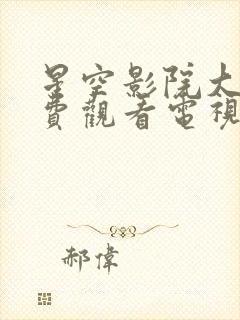 星空影院太
費觀看電視
郝偉